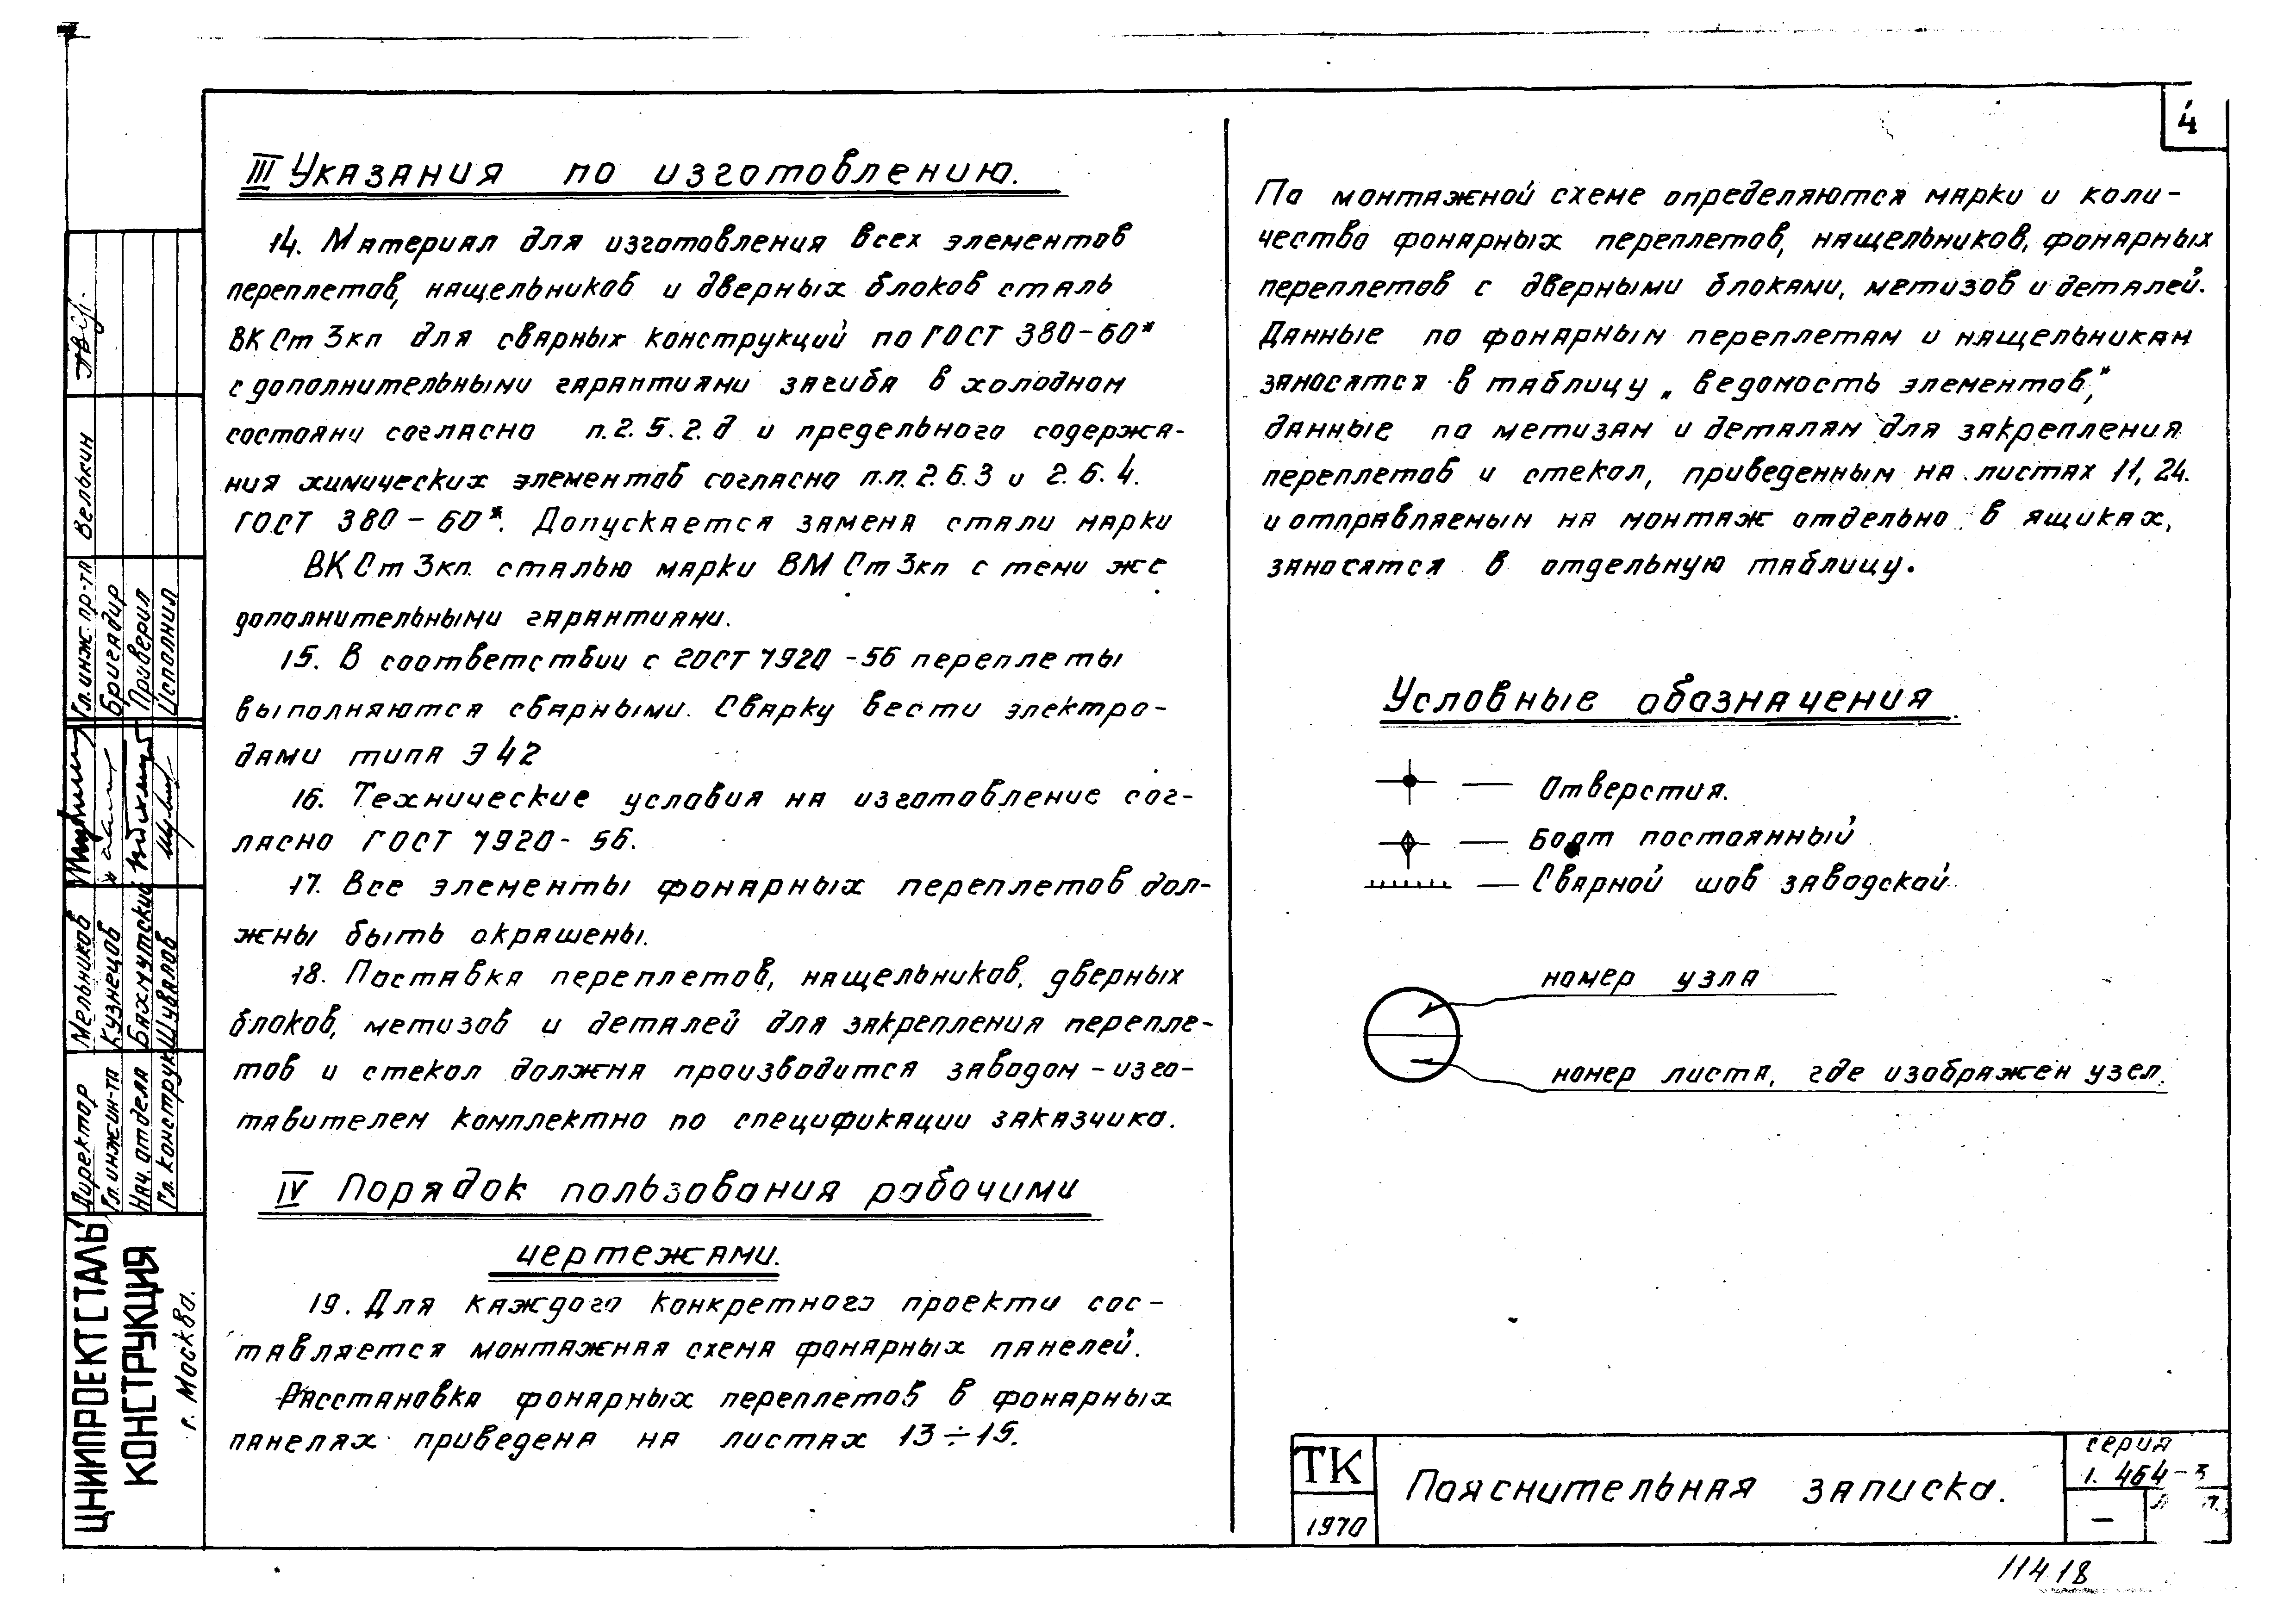 4
III Указания по изготовлению.
14. Материал для изготовления всех элементов
переплетов, нащельников и дверных блоков сталь
ВКСт3кп для сварных конструкций по ГОСТ 380-60*
с дополнительными гарантиями загиба в холодном
состояни согласно п.2.5.2.д и предельного содержа-
ния химических элементов согласно п.п.2.6.3 и 2.6.4.
ГОСТ 380-60*. Допускается замена стали марки
ВКСт3кп. сталью марки ВМСт3кп с теми же
дополнительными гарантиями.
15. В соответствии с ГОСТ 7920-56 переплеты
выполняются сварными. Сварку вести электро-
дами типа Э42
16. Технические условия на изготовление сог-
ласно ГОСТ 7920-56.
17. Все элементы фонарных переплетов дол-
жны быть окрашены.
18. Поставка переплетов, нащельников, дверных
блоков, метизов и деталей для закрепления перепле-
тов и стекол должна производится заводом-изго-
тавителем комплектно по спецификации заказчика.
IV Порядок пользования рабочими
чертежами.
19. Для каждого конкретного проекти сос-
тавляется монтажная схема фонарных панелей.
Расстановка фонарных переплетов в фонарных
панелях приведена на листах 13÷15.
По монтажной схеме определяются марки и коли-
чество фонарных переплетов, нащельников, фонарных
переплетов с дверными блоками, метизов и деталей.
Данные по фонарным переплетам и нащельникам
заносятся в таблицу „ведомость элементов",
данные по метизам и деталям для закрепления
переплетов и стекол, приведенным на листах 11, 24.
и отправляемым на монтаж отдельно в ящиках,
заносятся в отдельную таблицу.
Условные обозначения
— Отверстия.
— Болт постоянный
— Сварной шов заводской
номер узла
номер листа, где изображен узел.
ТК
1970
Пояснительная записка.
серия
1.464-3
—
11418
Гл. инж. пр-та Велькин
Бригадир
Проверил
Исполнил
Директор Мельников
Гл. инж ин-та Кузнецов
Нач. отдела Бахмутский
Гл. конструк Шувалов
ЦНИИПРОЕКТСТАЛЬ
КОНСТРУКЦИЯ
г. Москва.